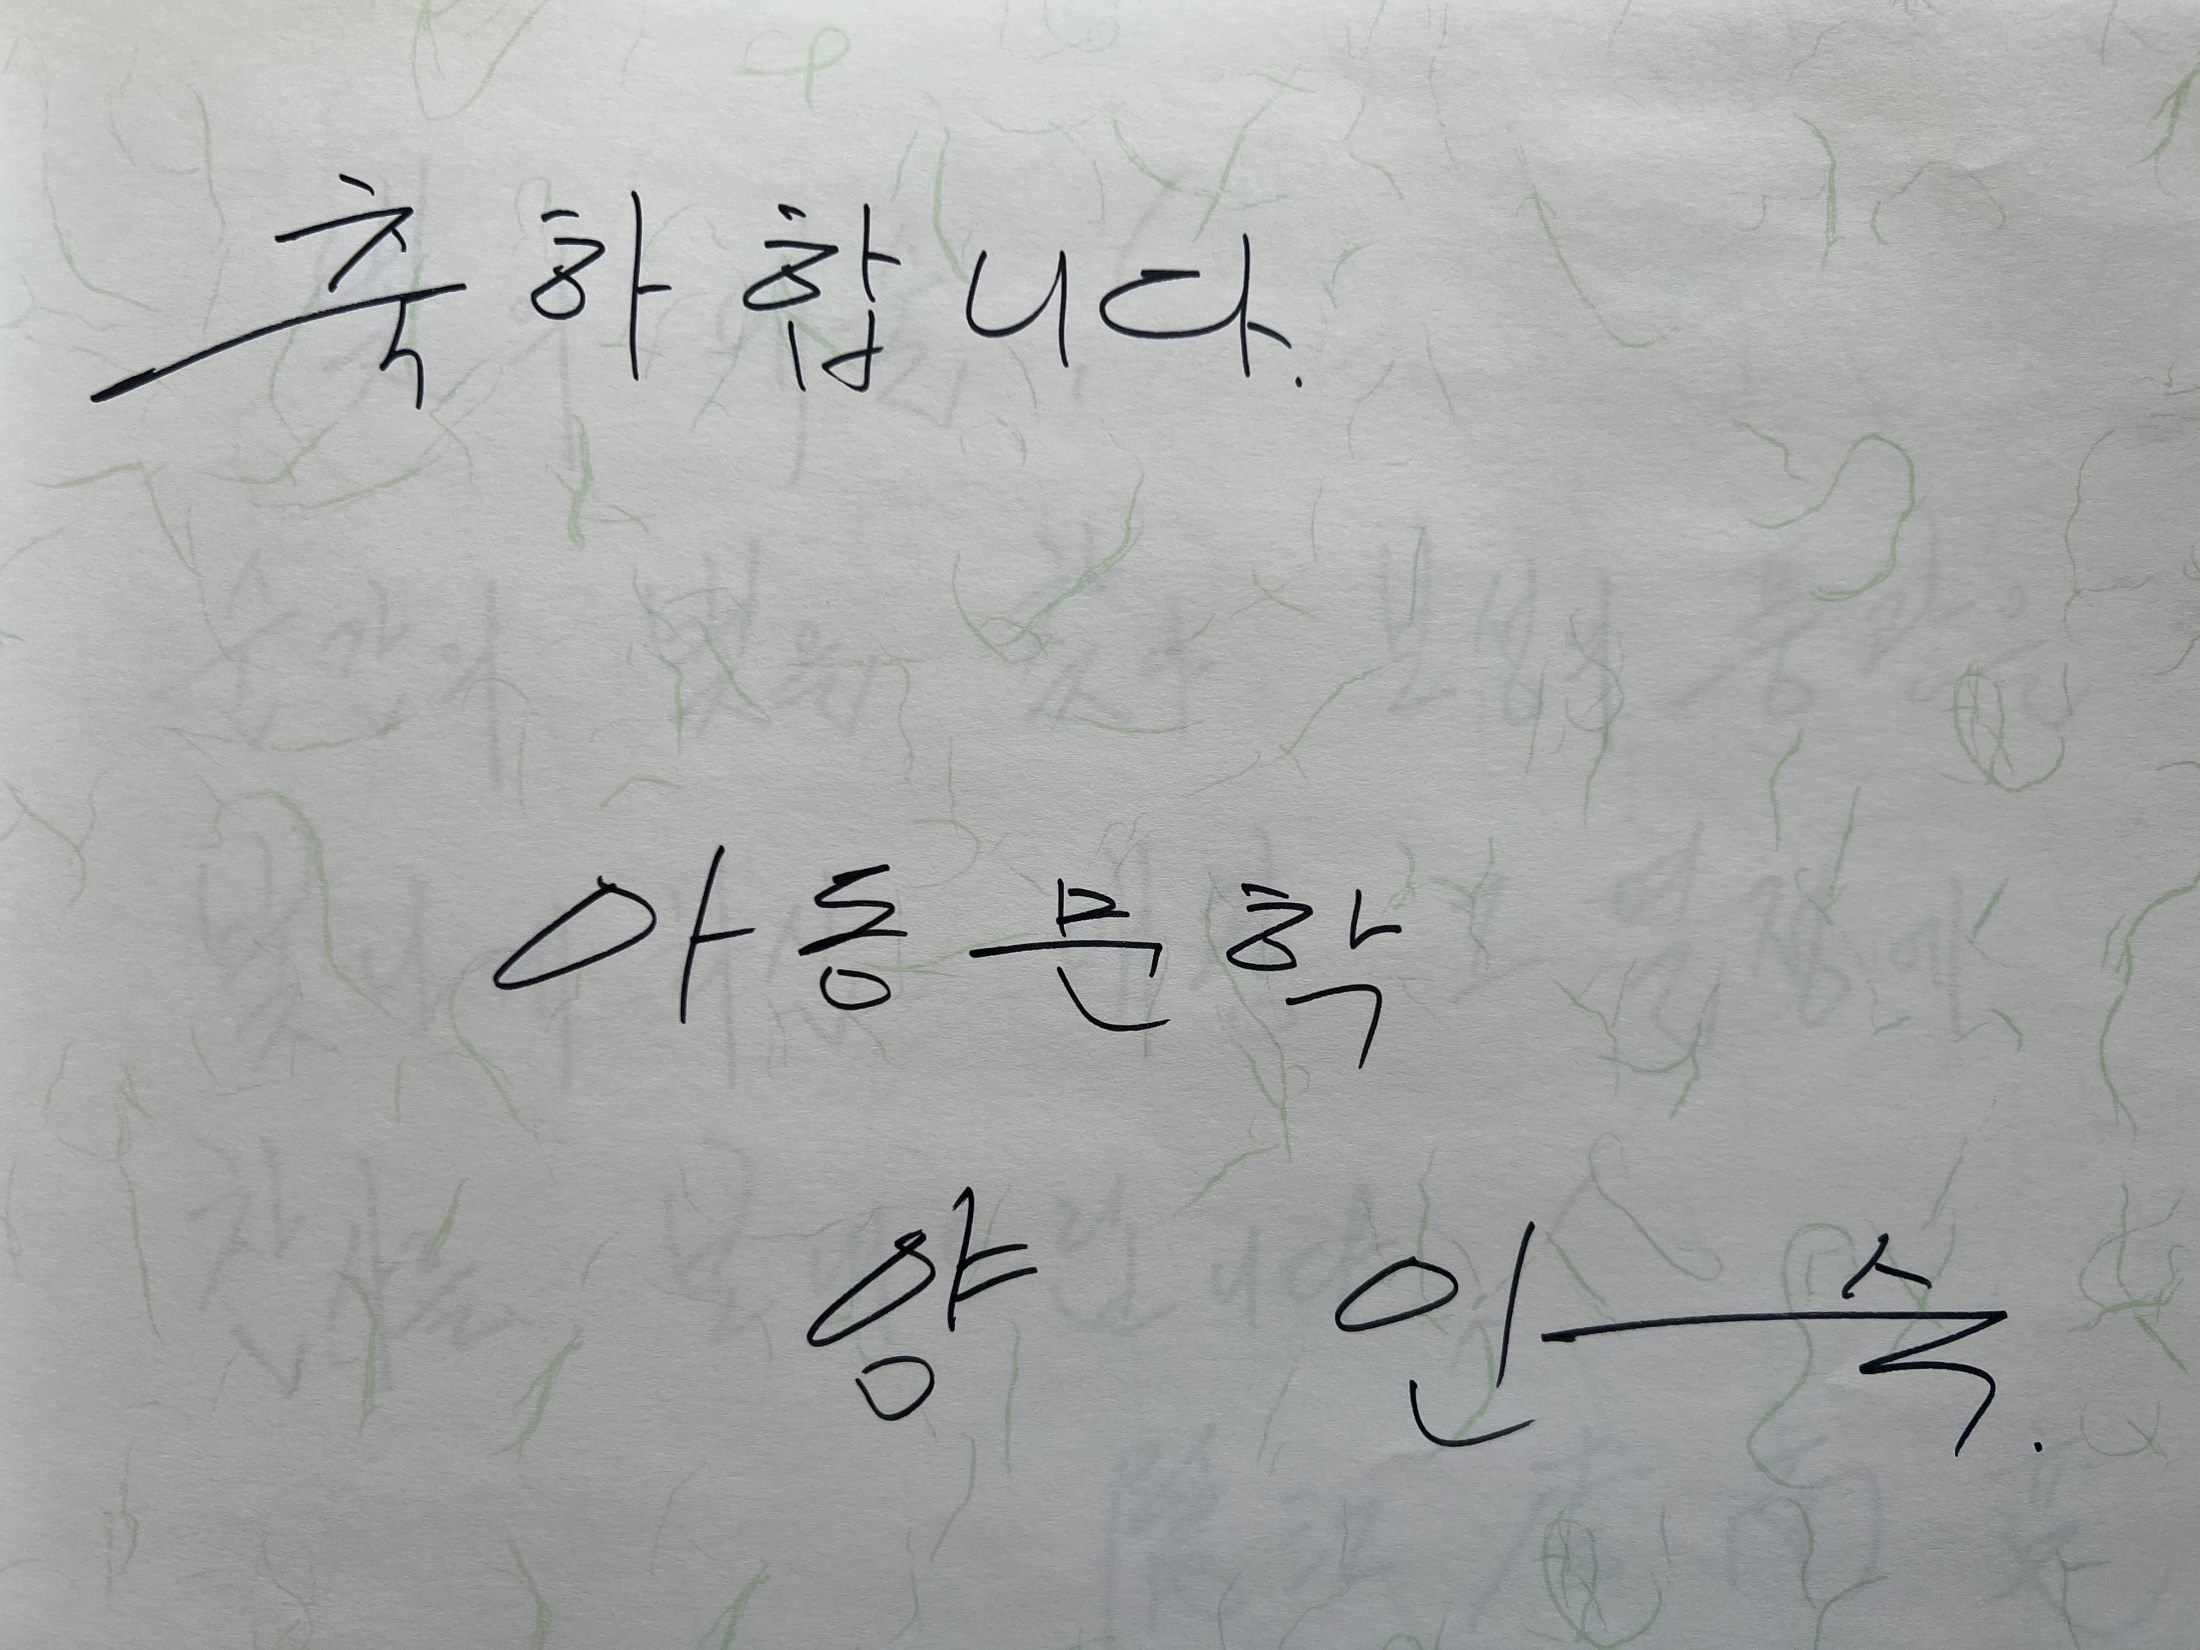 축하합니다.
아동문학
양 인숙.